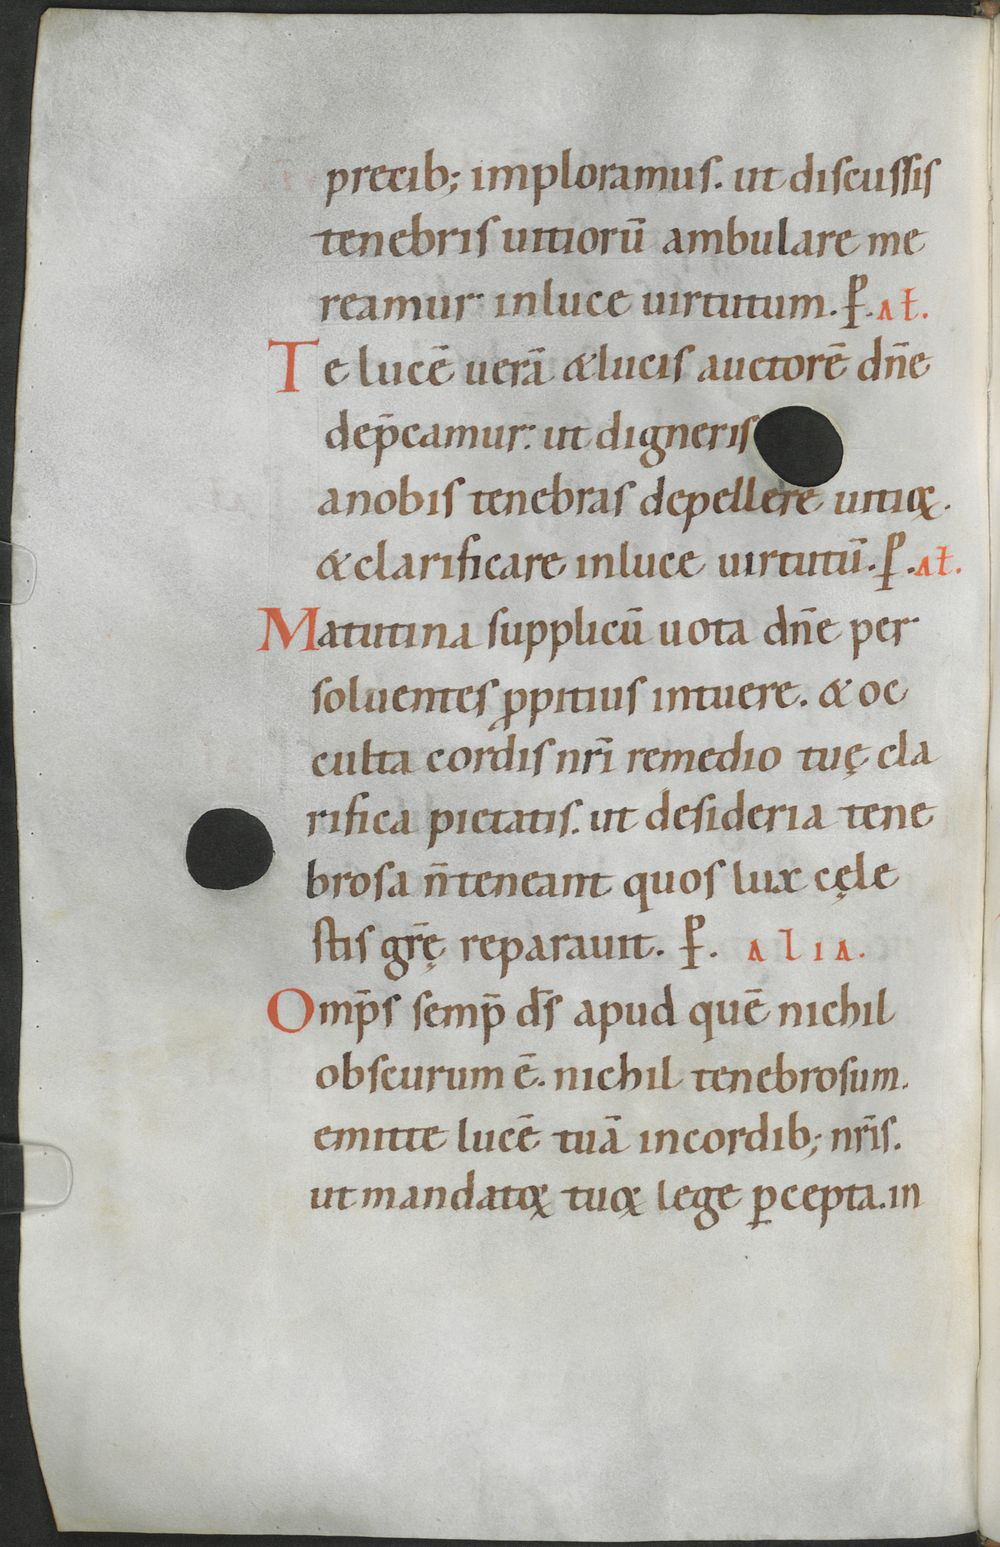 precib; imploramus. ut discussis
tenebris uitiorū ambulare me
reamur inluce uirtutum. P̱. Ał.
Te lucē uerā &lucis auctorē dn̄e
dep̄camur: ut digneris
anobis tenebras depellere uitioꝝ.
&clarificare inluce uirtutū. P̱. Ał.
Matutina supplicū uota dn̄e per
soluentes ꝓpitius intuere. & oc
culta cordis nr̄i remedio tuę cla
rifica pietatis. ut desideria tene
brosa n̄ teneant quos lux cęle
stis gr̄ę reparauit. P̱. ALIA.
Omp̄s semp̄ ds̄ apud quē nichil
obscurum ē. nichil tenebrosum.
emitte lucē tuā incordib; nr̄is.
ut mandatoꝝ tuoꝝ lege ꝑcepta. in